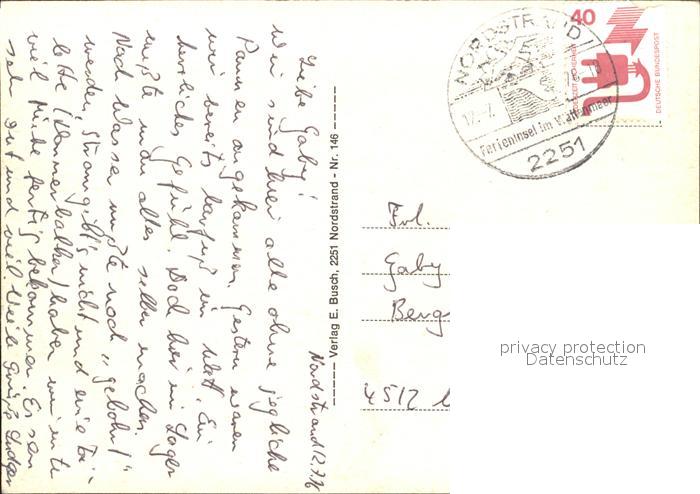 Nordstrand 12.7.76
Liebe Gaby!
Wir sind hier alle ohne jegliche
Pannen angekommen. Gestern waren
wir bereits barfuß im Watt. Ein
herrliches Gefühl. Doch hier im Lager
mußte man alles selber machen.
Nach Wasser mußte noch "gebohrt"
werden, Strom gibt's nicht und eine Toi-
lette (Donnerbalken) haben wir mit
viel Mühe fertig bekommen. Es
sehr gut und viel. Viele Grüße Ludger
Verlag E. Busch, 2251 Nordstrand - Nr. 146
40
DEUTSCHE BUNDESPOST
NORDSTRAND
Ferieninsel im Wattenmeer
2251
Frl.
Gaby
Berg
4512
privacy protection
Datenschutz